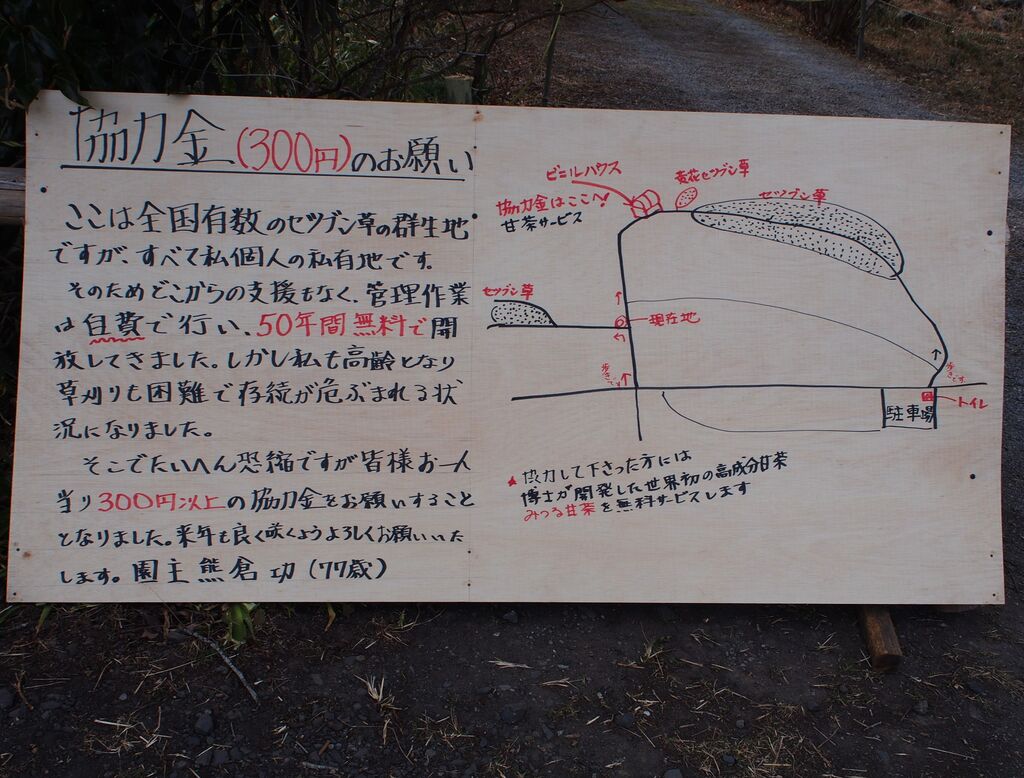 協力金(300円)のお願い
ここは全国有数のセツブン草の群生地
ですが、すべて私個人の私有地です。
そのためどこからの支援もなく、管理作業
は自費で行い、50年間無料で開
放してきました。しかし私も高齢となり
草刈りも困難で存続が危ぶまれる状
況になりました。
そこでたいへん恐縮ですが皆様お一人
当り300円以上の協力金をお願いすること
となりました。来年も良く咲くようよろしくお願いいた
します。園主 熊倉 功(77歳)
ビニルハウス
黄花セツブン草
セツブン草
協力金はここへ!
甘茶サービス
セツブン草
現在地
歩きで
歩きです
トイレ
駐車場
協力して下さった方には
博士が開発した世界初の高成分甘茶
みつる甘茶を無料サービスします